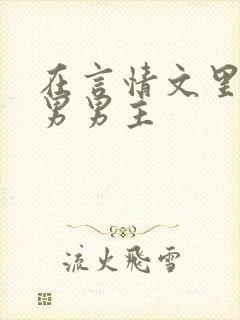 在言情文里
男男主
流火飛雪